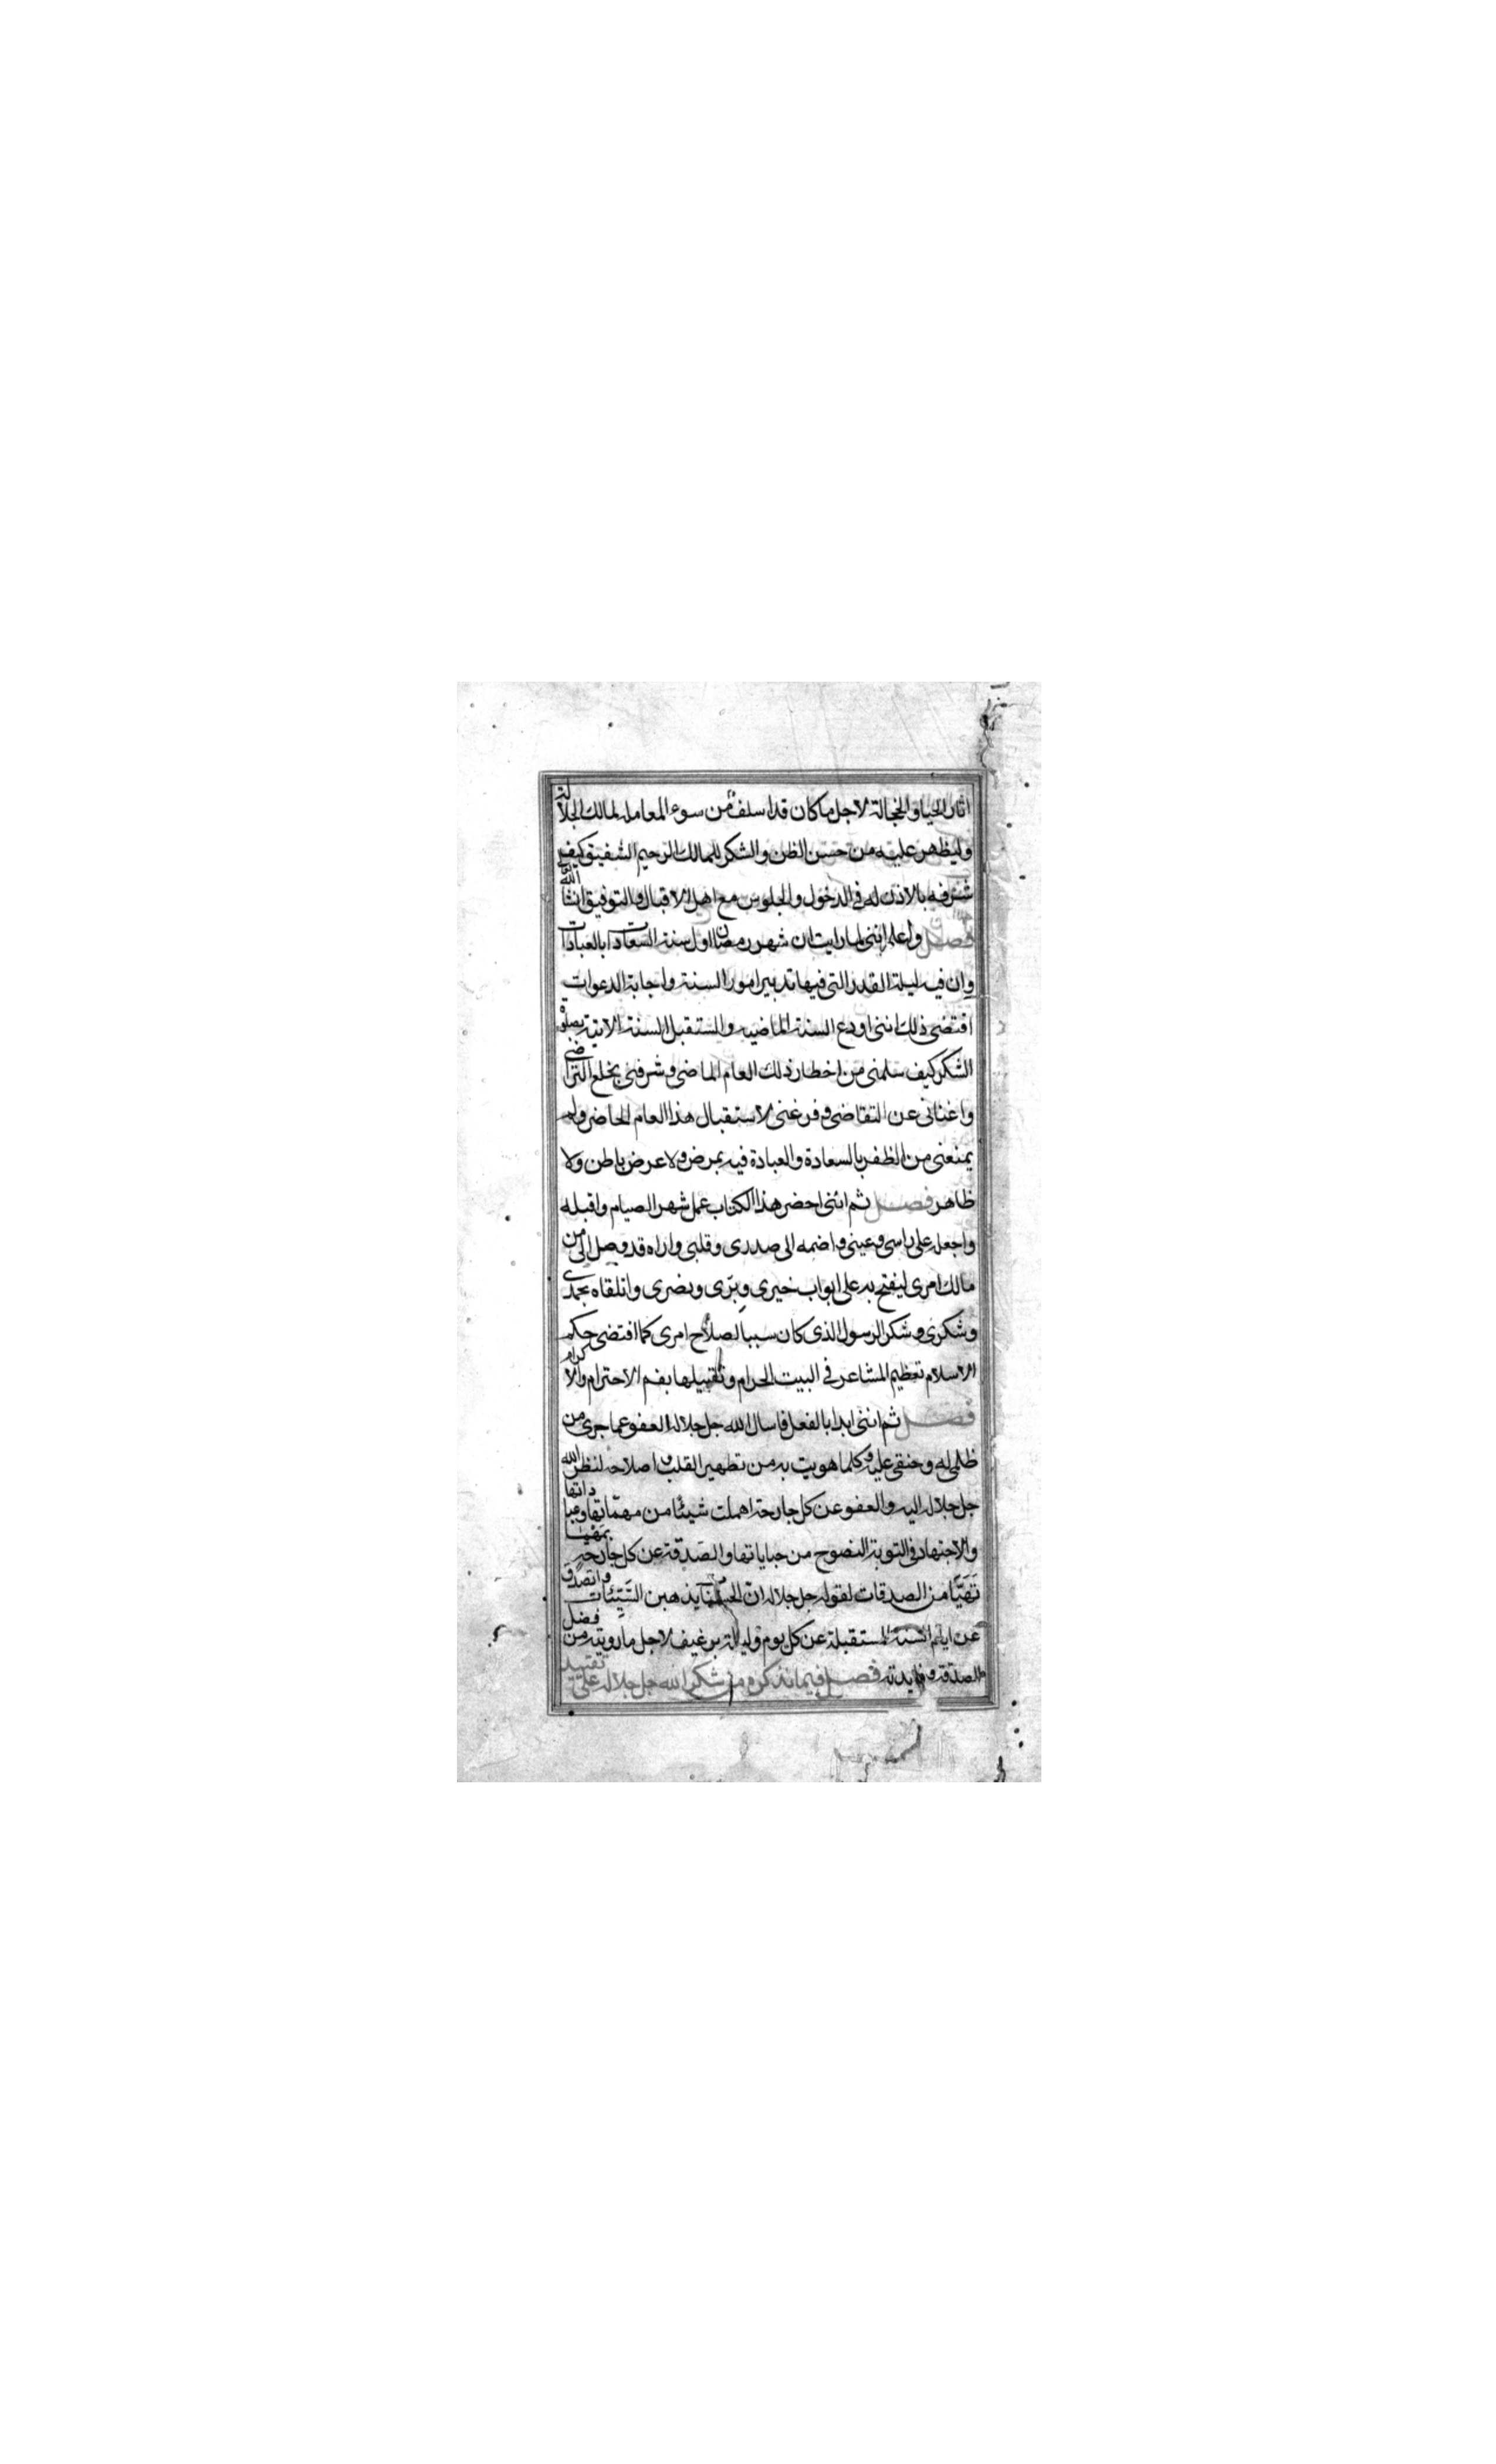 اثار الحيا والخجالة لاجل ما كان قد اسلف من سوء المعامله لمالك الجلالة
وليظهر عليه من حسن الظن والشكر للمالك الرحيم الشفيق كيف
شرفه بالاذن له في الدخول والجلوس مع اهل الاقبال والتوفيق انشا الله
فصل واعلم انني لما رايت ان شهر رمضان اول سنة السعادات بالعبادات
وان فيه ليلة القدر التي فيها تدبير امور السنة واجابة الدعوات
اقتضى ذلك انني اودع السنة الماضيه والستقبل السنة الاتية بصلوة
الشكر كيف سلمني من اخطار ذلك العام الماضي وشرفني بخلع التراضي
واغناني عن التقاضي وفرغني لاستقبال هذا العام الحاضر ولم
يمنعني من الظفر بالسعادة والعبادة فيه بمرض ولا عرض باطن ولا
ظاهر فصل ثم انني احضر هذا الكتاب عمل شهر الصيام واقبله
واجعله على راسي وعيني واضمه الى صدري وقلبي واراه قد وصل الي من
مالك امري ليفتح به علي ابواب خيري وبرّي ونصري واتلقاه بحمدي
وشكري وشكر الرسول الذي كان سببا لصلاح امري كما اقتضى حكم
الاسلام تعظيم المشاعر في البيت الحرام وتقبيلها بفم الاحترام والاكرام
فصل ثم انني ابدا بالفعل فاسال الله جل جلاله العفو عما جرى من
ظلمي له وحنقي عليه وكلما هويت به من تطهير القلب واصلاحه لنظر الله
جل جلاله اليه والعفو عن كل جارحة اهملت شيئا من مهمّاتها وعباداتها
والاجتهاد في التوبة النصوح من جناياتها والصدقة عن كل جارحه بمهما
تَهَيَّا من الصدقات لقوله جل جلاله انّ الحسنات يذهبن السَّيّئات واتصدق
عن ايام السنة المستقبلة عن كل يوم وليلة برغيف لاجل ما رويته من فضل
الصدقة وفايدته فصل فيما نذكره من شكر الله جل جلاله على تقييد